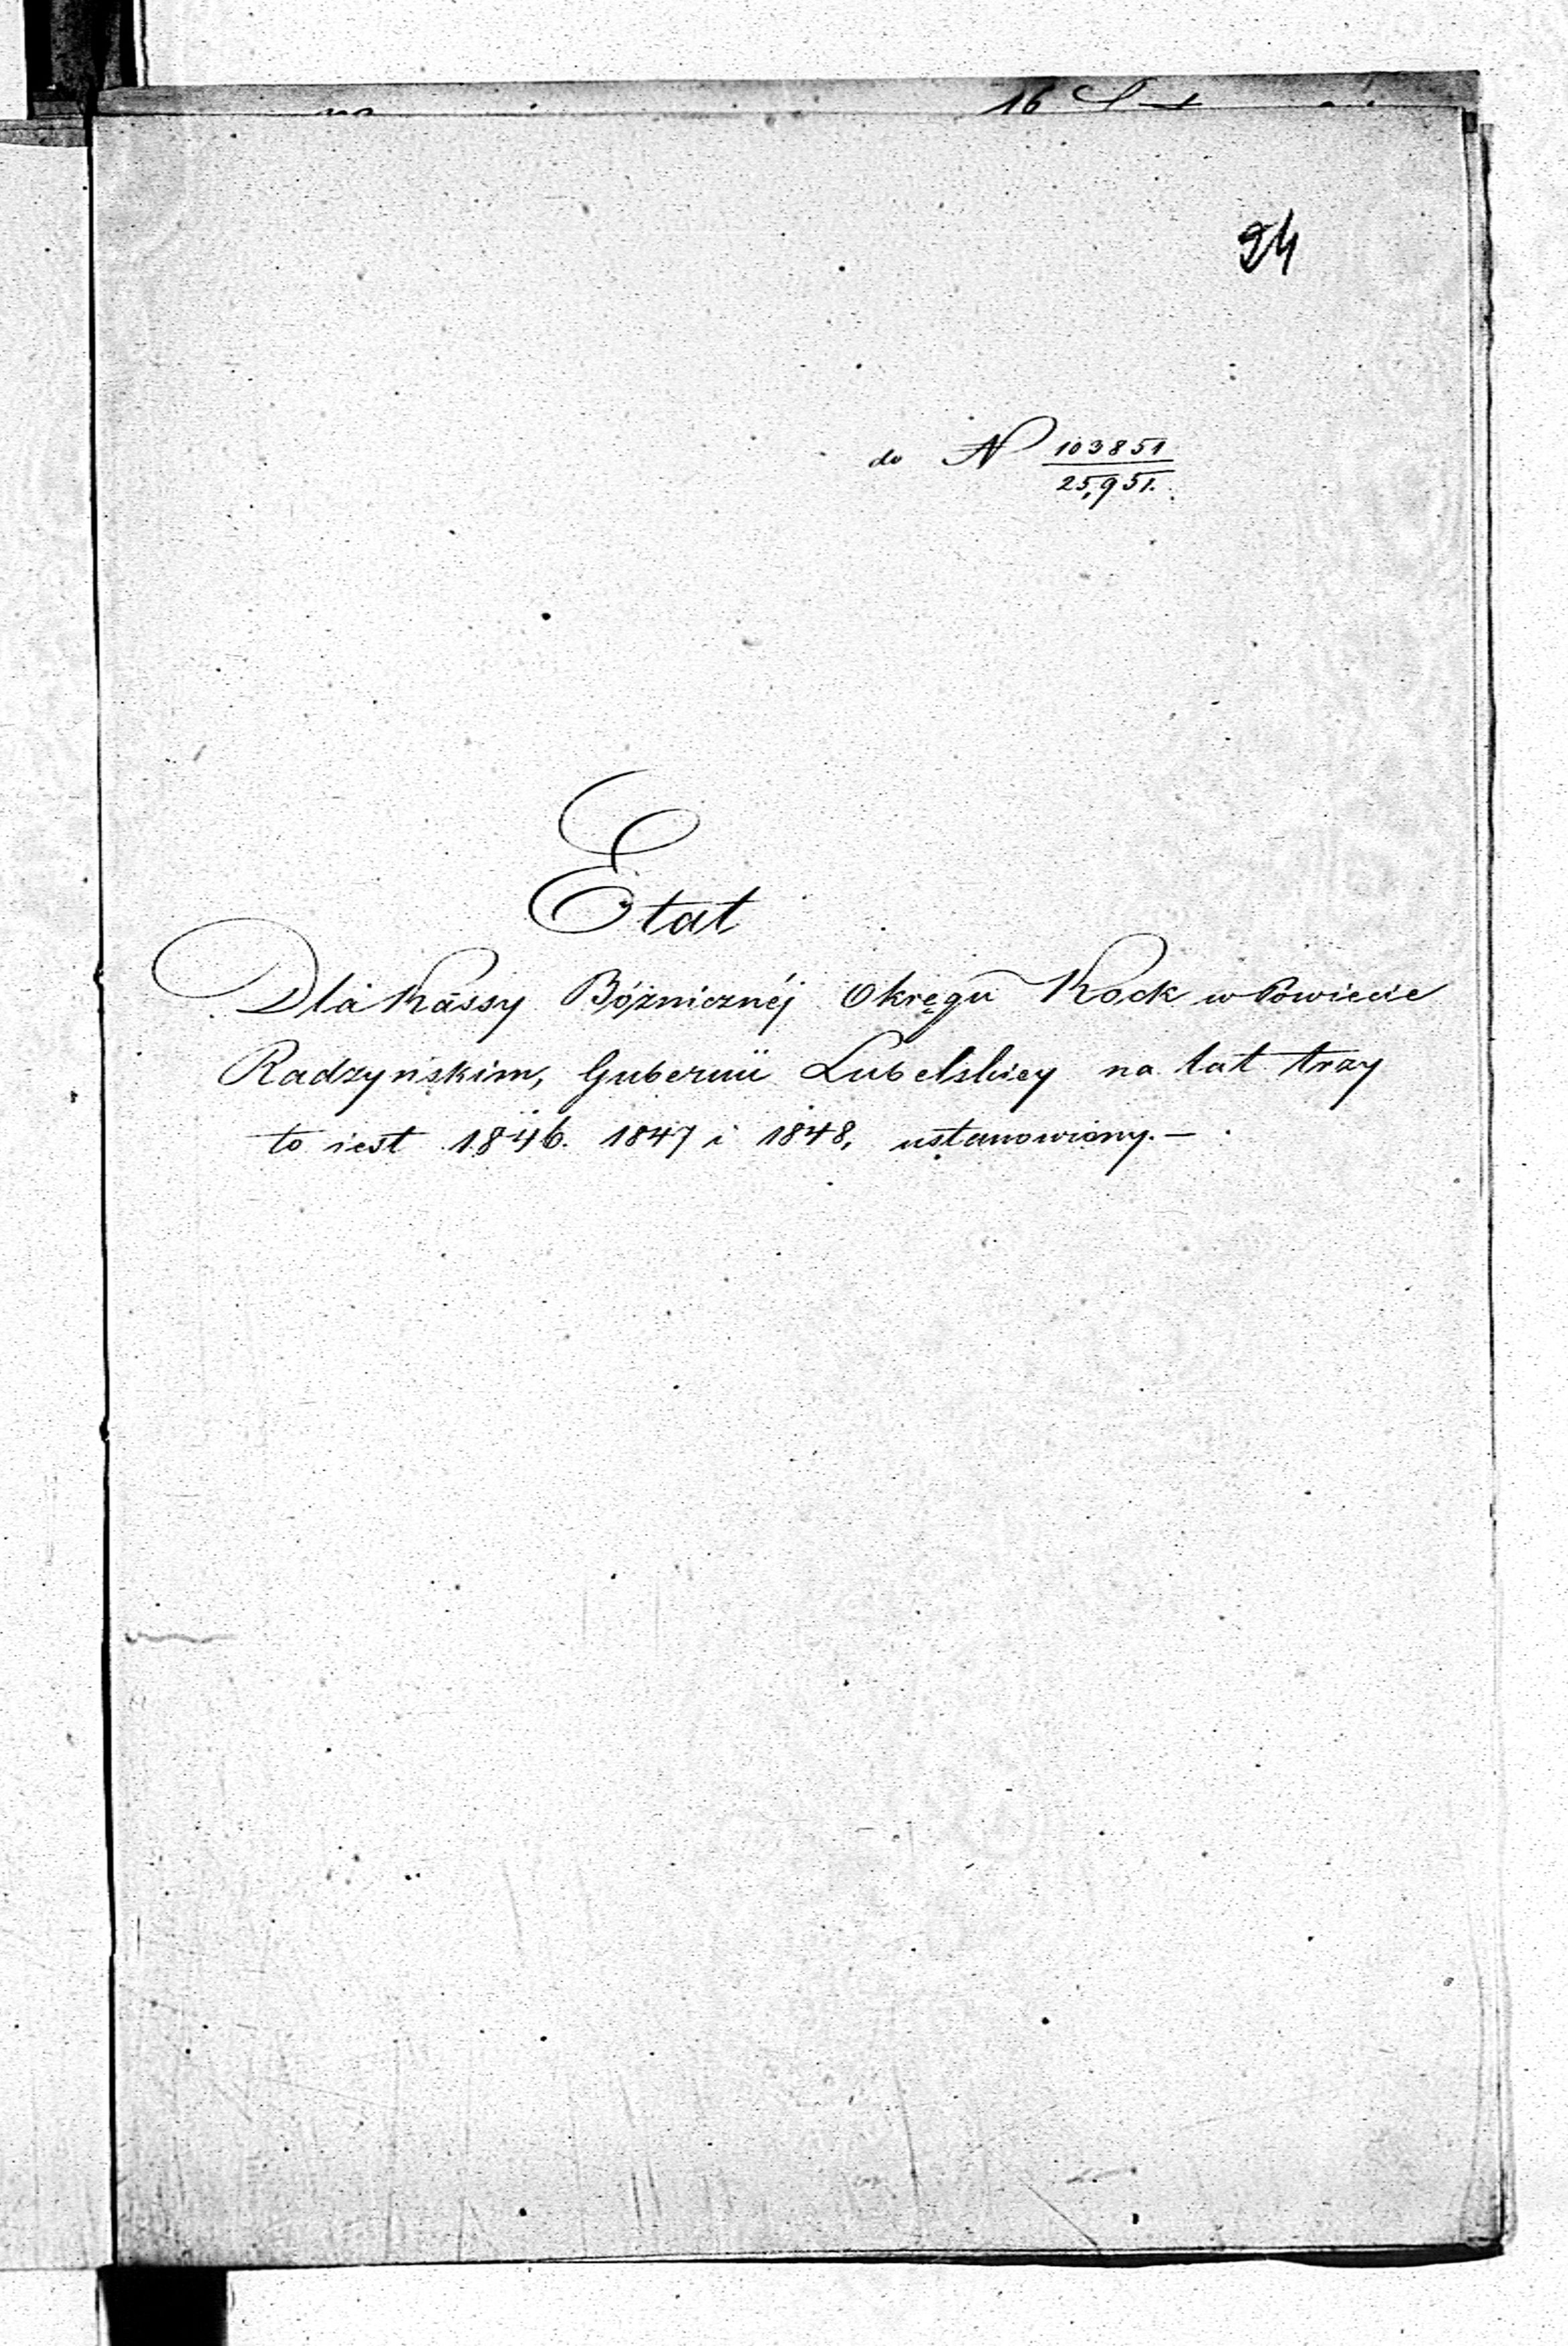 24
do N 103851
25,951.
Etat
Dla Kassy Bóżnicznéj Okręgu Kock w Powiecie
Radzyńskim, Gubernii Lubelskiey na lat trzy
to iest 1846. 1847 i 1848, ustanowiony.—